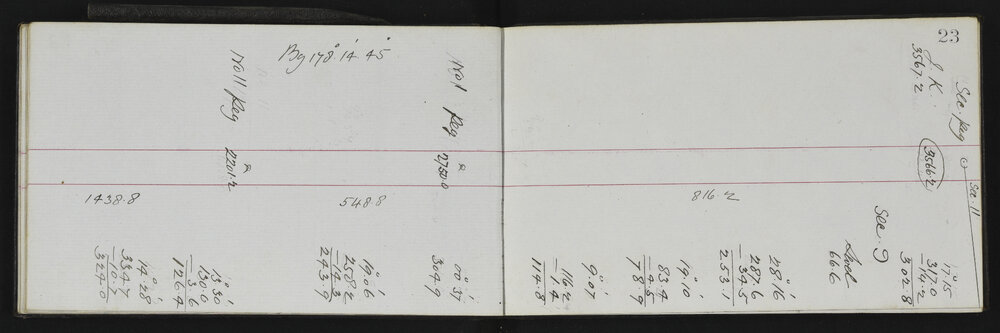 23
See pag
Sec. 11
J. K.
3567.2
3566.2
Sec. 9
17° 15'
317.0
-14.2
302.8
666
816.2
28° 16'
287.6
-34.5
253.1
19° 10'
83.4
-4.5
78.9
9° 07'
116.2
-1.4
114.8
No 1 Peg
2750.0
Bg 178° 14' 45"
548.8
00° 37'
304.9
19° 06'
258.2
-14.3
243.9
No 11 Peg
2201.2
1438.8
13° 30'
130.0
-3.6
126.4
14° 28'
334.7
-10.7
324.0